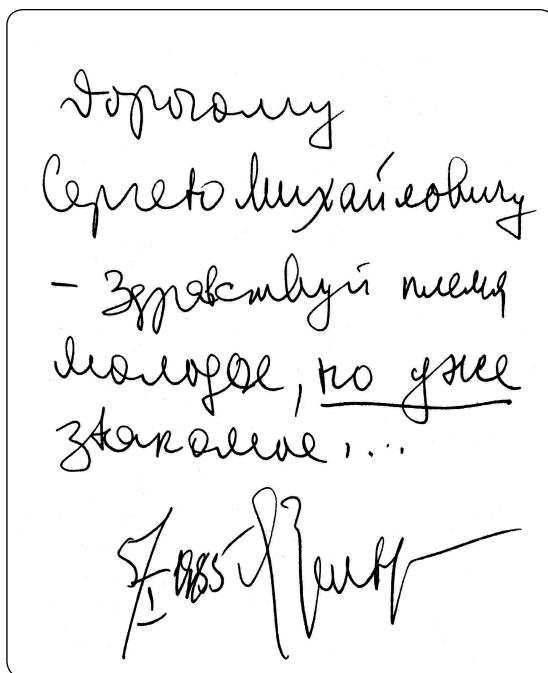 Дорогому
Сергею Михайловичу
- Здравствуй племя
молодое, но уже
знакомое...
5/I 1985